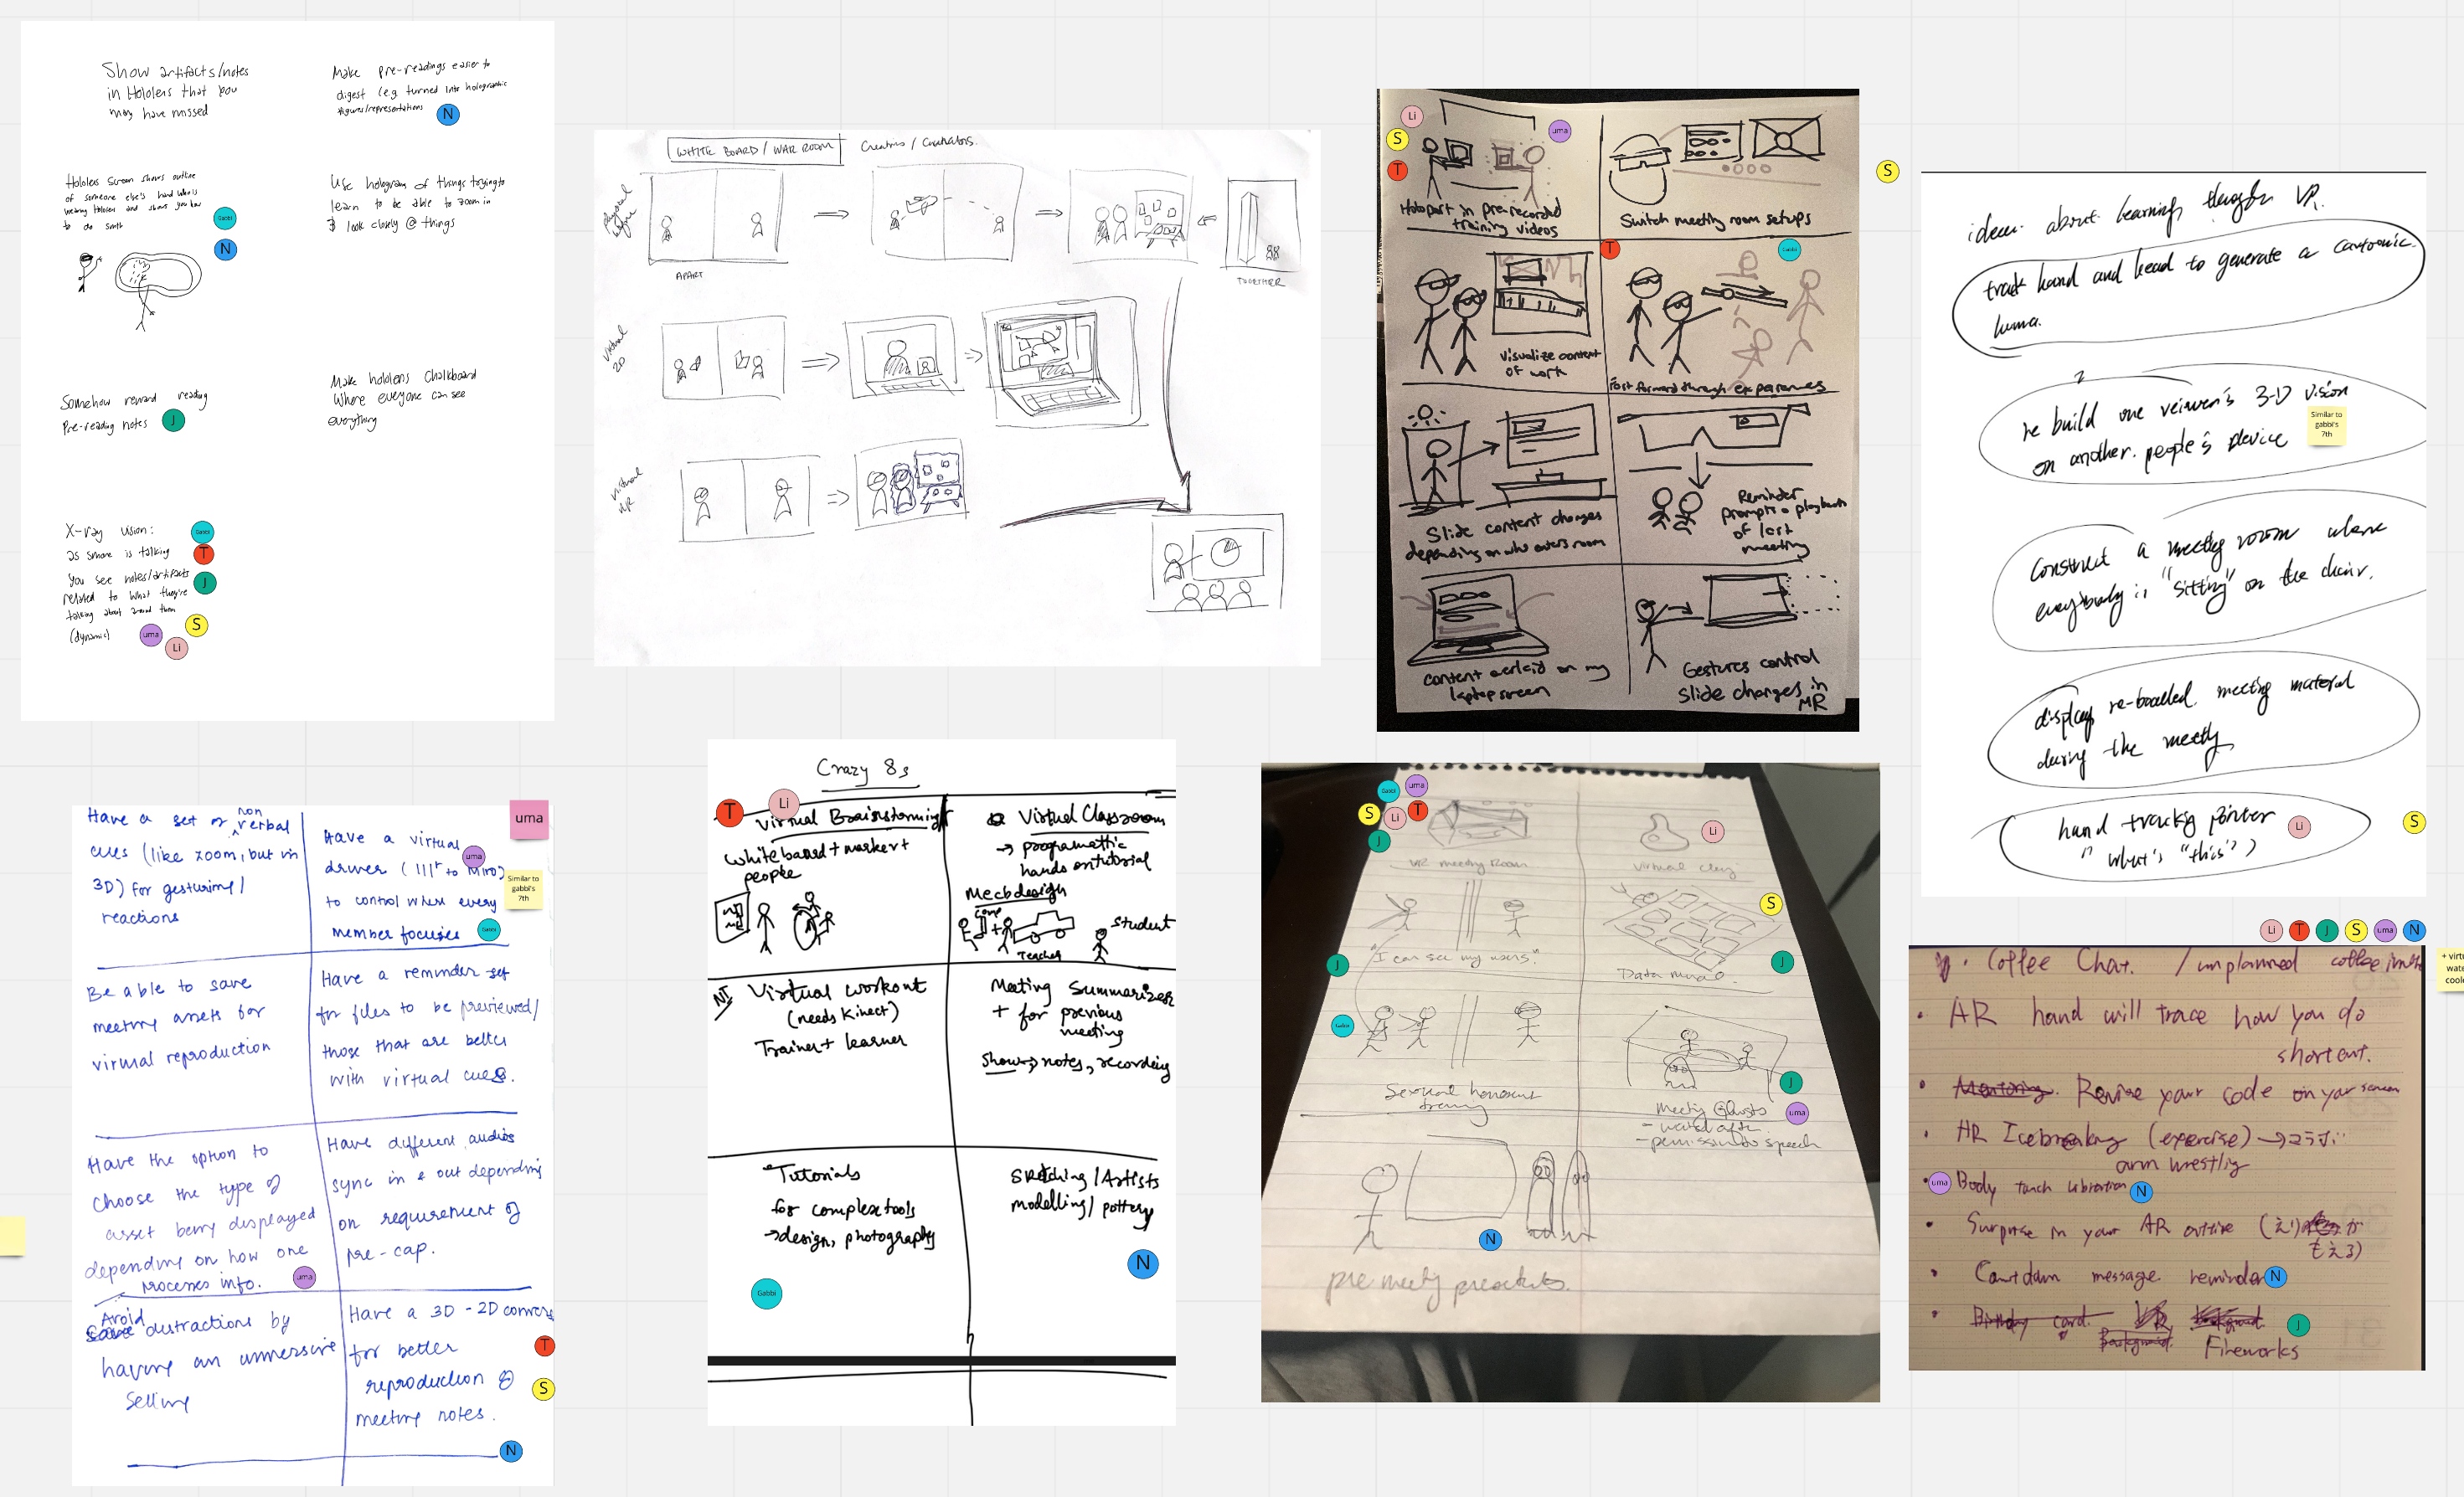 Show artifacts/notes
in Hololens that you
may have missed
Make pre-readings easier to
digest (e.g. turned into holographic
figures/representations
N
Hololens screen shows outline
of someone else's hand who is
wearing Hololens and shows you how
to do smth
Gabbi
N
Use hologram of things trying to
learn to be able to zoom in
& look closely @ things
Somehow reward reading
pre-reading notes
J
Make hololens chalkboard
Where everyone can see
everything
X-ray vision:
as smone is talking
you see notes/artifacts
related to what they're
talking about around them
(dynamic)
Gabbi
T
J
S
uma
Li
WHITE BOARD / WAR ROOM
Creators /
physical
APART
TOGETHER
virtual
2D
virtual
Li
S
T
uma
Holoport in pre-recorded
training videos
Switch meeting room setups
S
Visualize content
of work
T
Gabbi
Fast forward through experiences
Slide content changes
depending on who enters room
Reminder
prompts + playback
of last
meeting
content overlaid on my
laptop screen
Gestures control
slide changes in
MR
ideas about learning through VR.
track hand and head to generate a cartoonic
luma.
re build one veiwer's 3-D vision
on another people's device
Similar to
gabbi's
7th
construct a meeting room where
everybody is "sitting" on the chair.
display meeting material
during the meeting
hand tracking pointer
" what's "this")
Li
S
uma
Have a set of non verbal
cues (like zoom, but in
3D) for gesturing/
reactions
Have a virtual
driver (lllr to Miro)
to control where every
member focuses
uma
Similar to
gabbi's
7th
Gabbi
Be able to save
meeting assets for
virtual reproduction
Have a reminder set
for files to be previewed/
those that are better
with virtual cues.
Have the option to
choose the type of
asset being displayed
depending on how one
processes info.
uma
Have different audios
sync in & out depending
on requirement of
pre-cap.
Avoid
distractions by
having an immersive
setting
Have a 3D - 2D convers
for better
reproduction of
meeting notes.
T
S
N
Crazy 8s
T
Li
Virtual Brainstorming
whiteboard + marker +
people
Virtual Classroom
→ programattic
hands on tutorial
Mech design
Teacher
Student
Virtual workout
(needs Kinect)
Trainer + learner
Meeting Summarizer
+ for previous
meeting
Show → notes, recording
Tutorials
for complex tools
→ design, photography
Gabbi
Sketching/Artists
modelling/pottery
N
Gabbi
uma
S
Li
T
J
VR meeting Room
Li
virtual clay
"I can see my users"
J
S
Data
J
Gabbi
Sexual harassment
training
Meeting Ghosts
- watch after
- permission to speech
J
uma
N
pre meeting
Li
T
J
S
uma
N
Coffee Chat. / unplanned coffee
+ virtu
wate
coole
AR hand will trace how you do
shortcut.
Mentoring. Revise your code on your screen
AR Icebreaking (exercise) →
arm wrestling
uma
Body touch vibration
N
Surprise in your AR outline
Countdown message reminder
N
Birthday card
Background
Fireworks
J